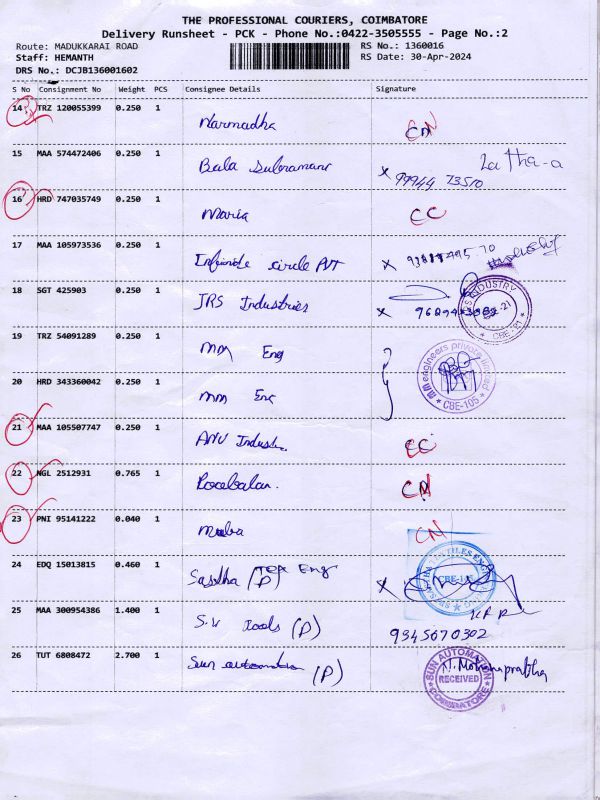 THE PROFESSIONAL COURIERS, COIMBATORE
Delivery Runsheet - PCK - Phone No.:0422-3505555 - Page No.:2
Route: MADUKKARAI ROAD RS No.: 1360016
Staff: HEMANTH RS Date: 30-Apr-2024
DRS No.: DCJB136001602
S No Consignment No Weight PCS Consignee Details Signature
14 TRZ 120055399 0.250 1 Narmadha CN
15 MAA 574472406 0.250 1 Bala Subramani x 99944 73510 Latha-a
16 HRD 747035749 0.250 1 Maria CC
17 MAA 105973536 0.250 1 circle Pvt x
18 SGT 425903 0.250 1 JRS Industries x
INDUSTRY CBE-21
19 TRZ 54091289 0.250 1 mm Eng
mm engineers private limited CBE-105
20 HRD 343360042 0.250 1 mm Eng
21 MAA 105507747 0.250 1 CC
22 NGL 2512931 0.765 1 CN
23 PNI 95141222 0.040 1 CN
24 EDQ 15013815 0.460 1 Tex Eng (P) x
CBE-
25 MAA 300954386 1.400 1 S.V Tools (P) 9345070302
26 TUT 6808472 2.700 1 Sun automation (P) Mohanaprabha
SUN AUTOMATION RECEIVED COIMBATORE